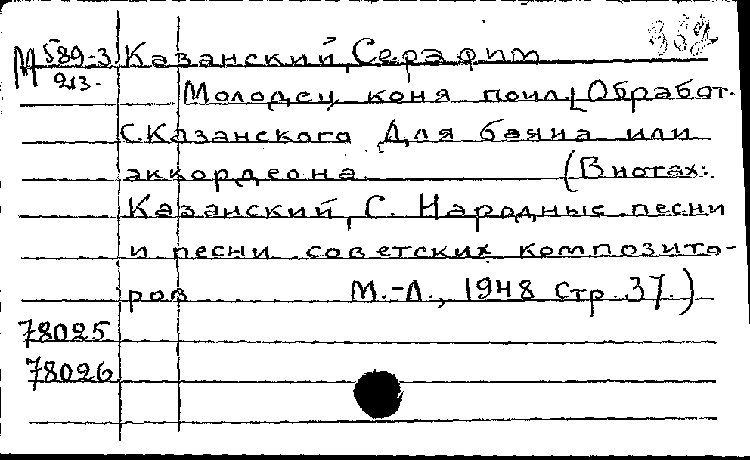 М 589-3 Казанский, Серафим
213.
Молодец коня поил [Обработ.
С. Казанского Для баяна или
аккордеона (В нотах:
Казанский, С. Народные песни
и песни советских композито-
ров М.-Л., 1948 Стр. 37.)
78025
78026